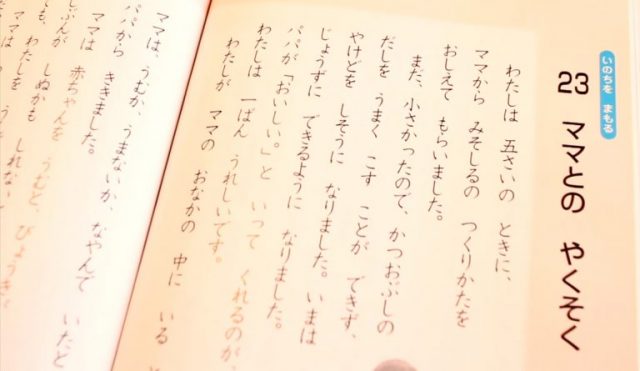 いのちを まもる
23 ママとの やくそく
わたしは 五さいの ときに、
ママから みそしるの つくりかたを
おしえて もらいました。
まだ、小さかったので、かつおぶしの
だしを うまく こす ことが できず、
やけどを しそうに なりました。いまは
じょうずに できるように なりました。
パパが「おいしい。」と いって くれるのが、
わたしは 一ばん うれしいです。
わたしが ママの おなかの 中に いる
ママは、うむか、うまないか、なやんで いたと
パパから ききました。
ママは 赤ちゃんを うむと、びょうきが
しぬかも しれない
わたしを
ママは